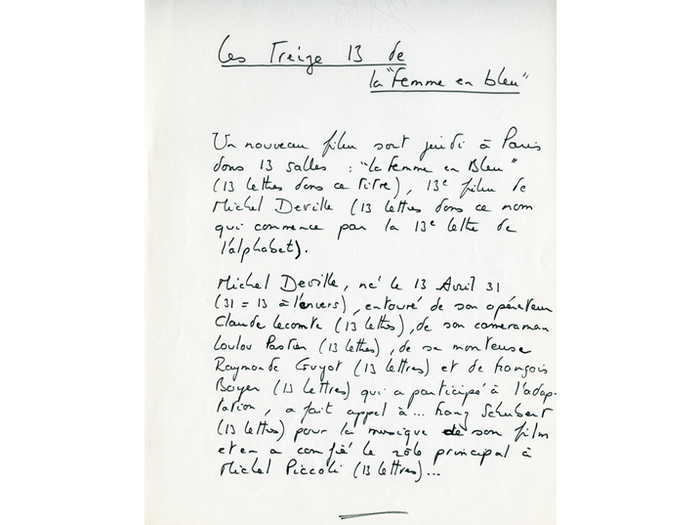 Les Treize 13 de
la "Femme en bleu"
Un nouveau film sort jeudi à Paris
dans 13 salles : "la Femme en Bleu"
(13 lettres dans ce titre), 13e film de
Michel Deville (13 lettres dans ce nom
qui commence par la 13e lettre de
l'alphabet).
Michel Deville, né le 13 Avril 31
(31 = 13 à l'envers), entouré de son opérateur
Claude Lecomte (13 lettres), de son cameraman
Loulou Pastier (13 lettres), de sa monteuse
Raymonde Guyot (13 lettres) et de François
Boyer (13 lettres) qui a participé à l'adap-
tation, a fait appel à... Franz Schubert
(13 lettres) pour la musique de son film
et en a confié le rôle principal à
Michel Piccoli (13 lettres)...